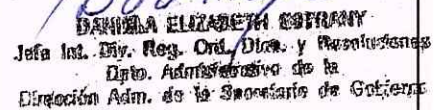 DANIELA ELIZABETH ESTRANY
Jefa Int. Div. Reg. Ord. Disp. y Resoluciones
Dpto. Administrativo de la
Dirección Adm. de la Secretaría de Gobierno